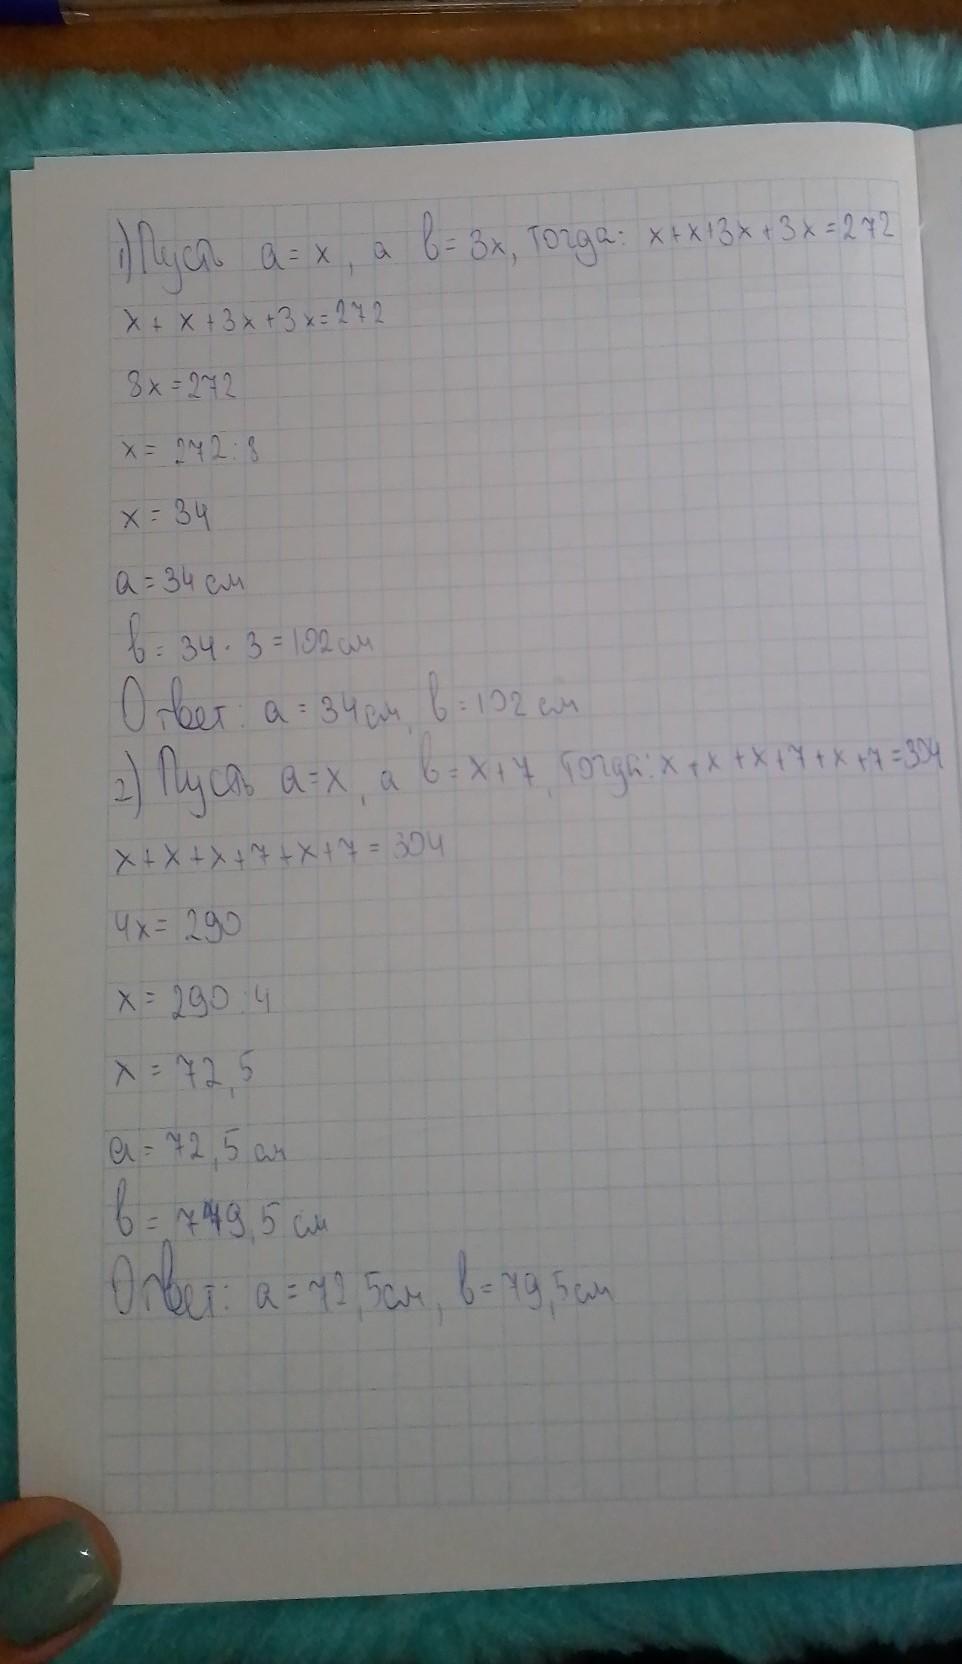 1) Пусть a = x, а b = 3x, тогда: x+x+3x+3x=272
x + x + 3x + 3x = 272
8x = 272
x = 272 : 8
x = 34
a = 34 см
b = 34 · 3 = 102 см
Ответ: a = 34 см, b = 102 см
2) Пусть a = x, а b = x + 7, тогда: x + x + x + 7 + x + 7 = 304
x + x + x + 7 + x + 7 = 304
4x = 290
x = 290 : 4
x = 72,5
a = 72,5 см
b = 79,5 см
Ответ: a = 72,5см, b = 79,5см